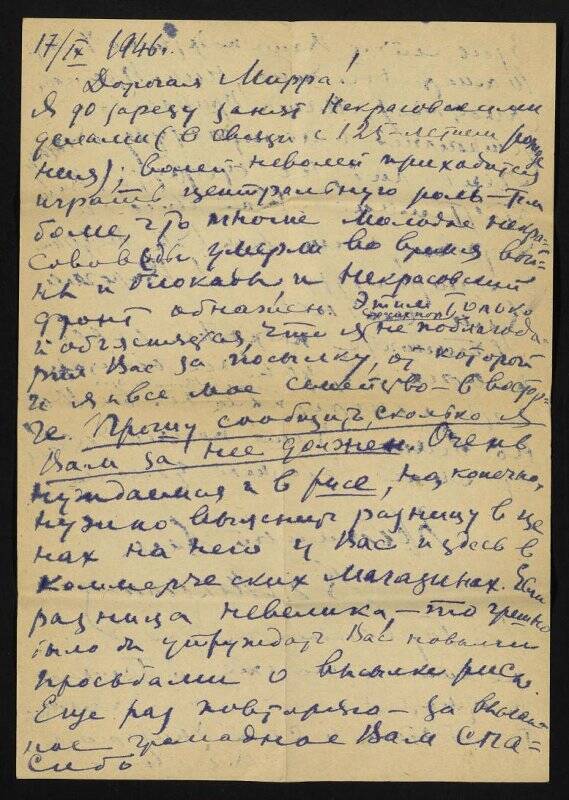 17/IX 1946г.
Дорогая Мирра!
Я до зарезу занят Некрасовскими
делами (в связи с 125-летием рожде
ния); волей неволей приходится
играть центральную роль – тем
более, что многие молодые некра-
сововеды умерли во время вой-
ны и блокады и Некрасовский
фронт обнажен. Этим только
и объясняется, что я до сих пор не поблагода-
рил Вас за посылку, от которой
и я и все мое семейство – в востор-
ге. Прошу сообщить, сколько я
Вам за нее должен. Очень
нуждаемся и в рисе, но, конечно,
нужно выяснить разницу в це
нах на него у Вас и здесь в
коммерческих магазинах. Если
разница невелика, – то грешно
было бы утруждать Вас новыми
просьбами о высылке риса.
Еще раз повторяю – за
ное громадное Вам спа-
сибо